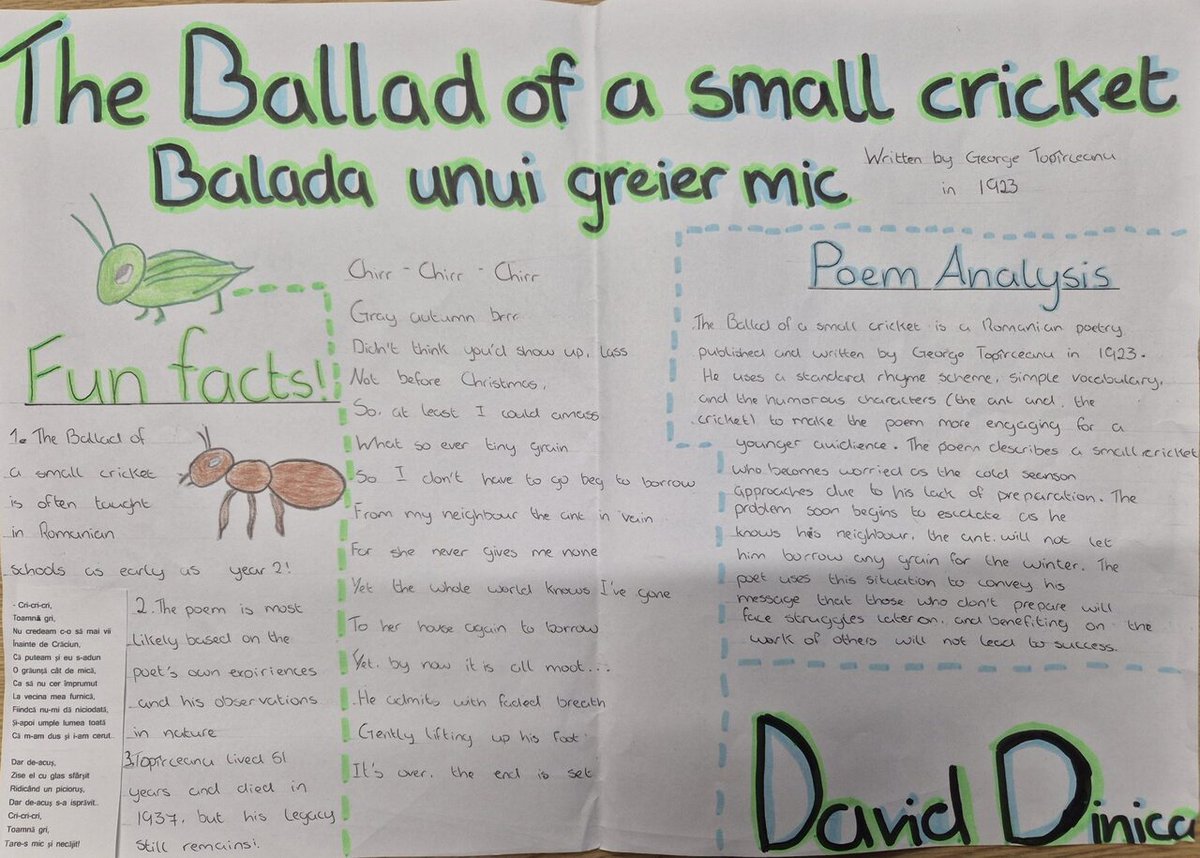 The Ballad of a small cricket
Balada unui greier mic
Written by George Topîrceanu
in 1923
Fun facts!
1. The Ballad of
a small cricket
is often taught
in Romanian
schools as early as year 2!
2. The poem is most
likely based on the
poet's own expiriences
and his observations
in nature
3. Topîrceanu lived 51
years and died in
1937, but his legacy
still remains!
- Cri-cri-cri,
Toamnă gri,
Nu credeam c-o să mai vii
Înainte de Crăciun,
Că puteam și eu s-adun
O grăunță cât de mică,
Ca să nu cer împrumut
La vecina mea furnică,
Fiindcă nu-mi dă niciodată,
Și-apoi umple lumea toată
Că m-am dus și i-am cerut..
Dar de-acuș,
Zise el cu glas sfârșit
Ridicând un picioruș,
Dar de-acuș s-a isprăvit..
Cri-cri-cri,
Toamnă gri,
Tare-s mic și necăjit!
Chirr - Chirr - Chirr
Gray autumn brrr
Didn't think you'd show up, lass
Not before Christmas,
So, at least I could amass
What so ever tiny grain
So I don't have to go beg to borrow
From my neighbour the ant in vain
For she never gives me none
Yet the whole world knows I've gone
To her house again to borrow
Yet, by now it is all moot...
He admits with faded breath
Gently lifting up his foot:
It's over, the end is set
Poem Analysis
The Ballad of a small cricket is a Romanian poetry
published and written by George Topîrceanu in 1923.
He uses a standard rhyme scheme, simple vocabulary,
and the humorous characters (the ant and, the
cricket) to make the poem more engaging for a
younger auidience. The poem describes a small cricket
who becomes worried as the cold seanson
approaches due to his lack of preparation. The
problem soon begins to esclate as he
knows his neighbour, the ant, will not let
him borrow any grain for the winter. The
poet uses this situation to convey his
message that those who don't prepare will
face struggles later on, and benefiting on the
work of others will not lead to success.
David Dinica